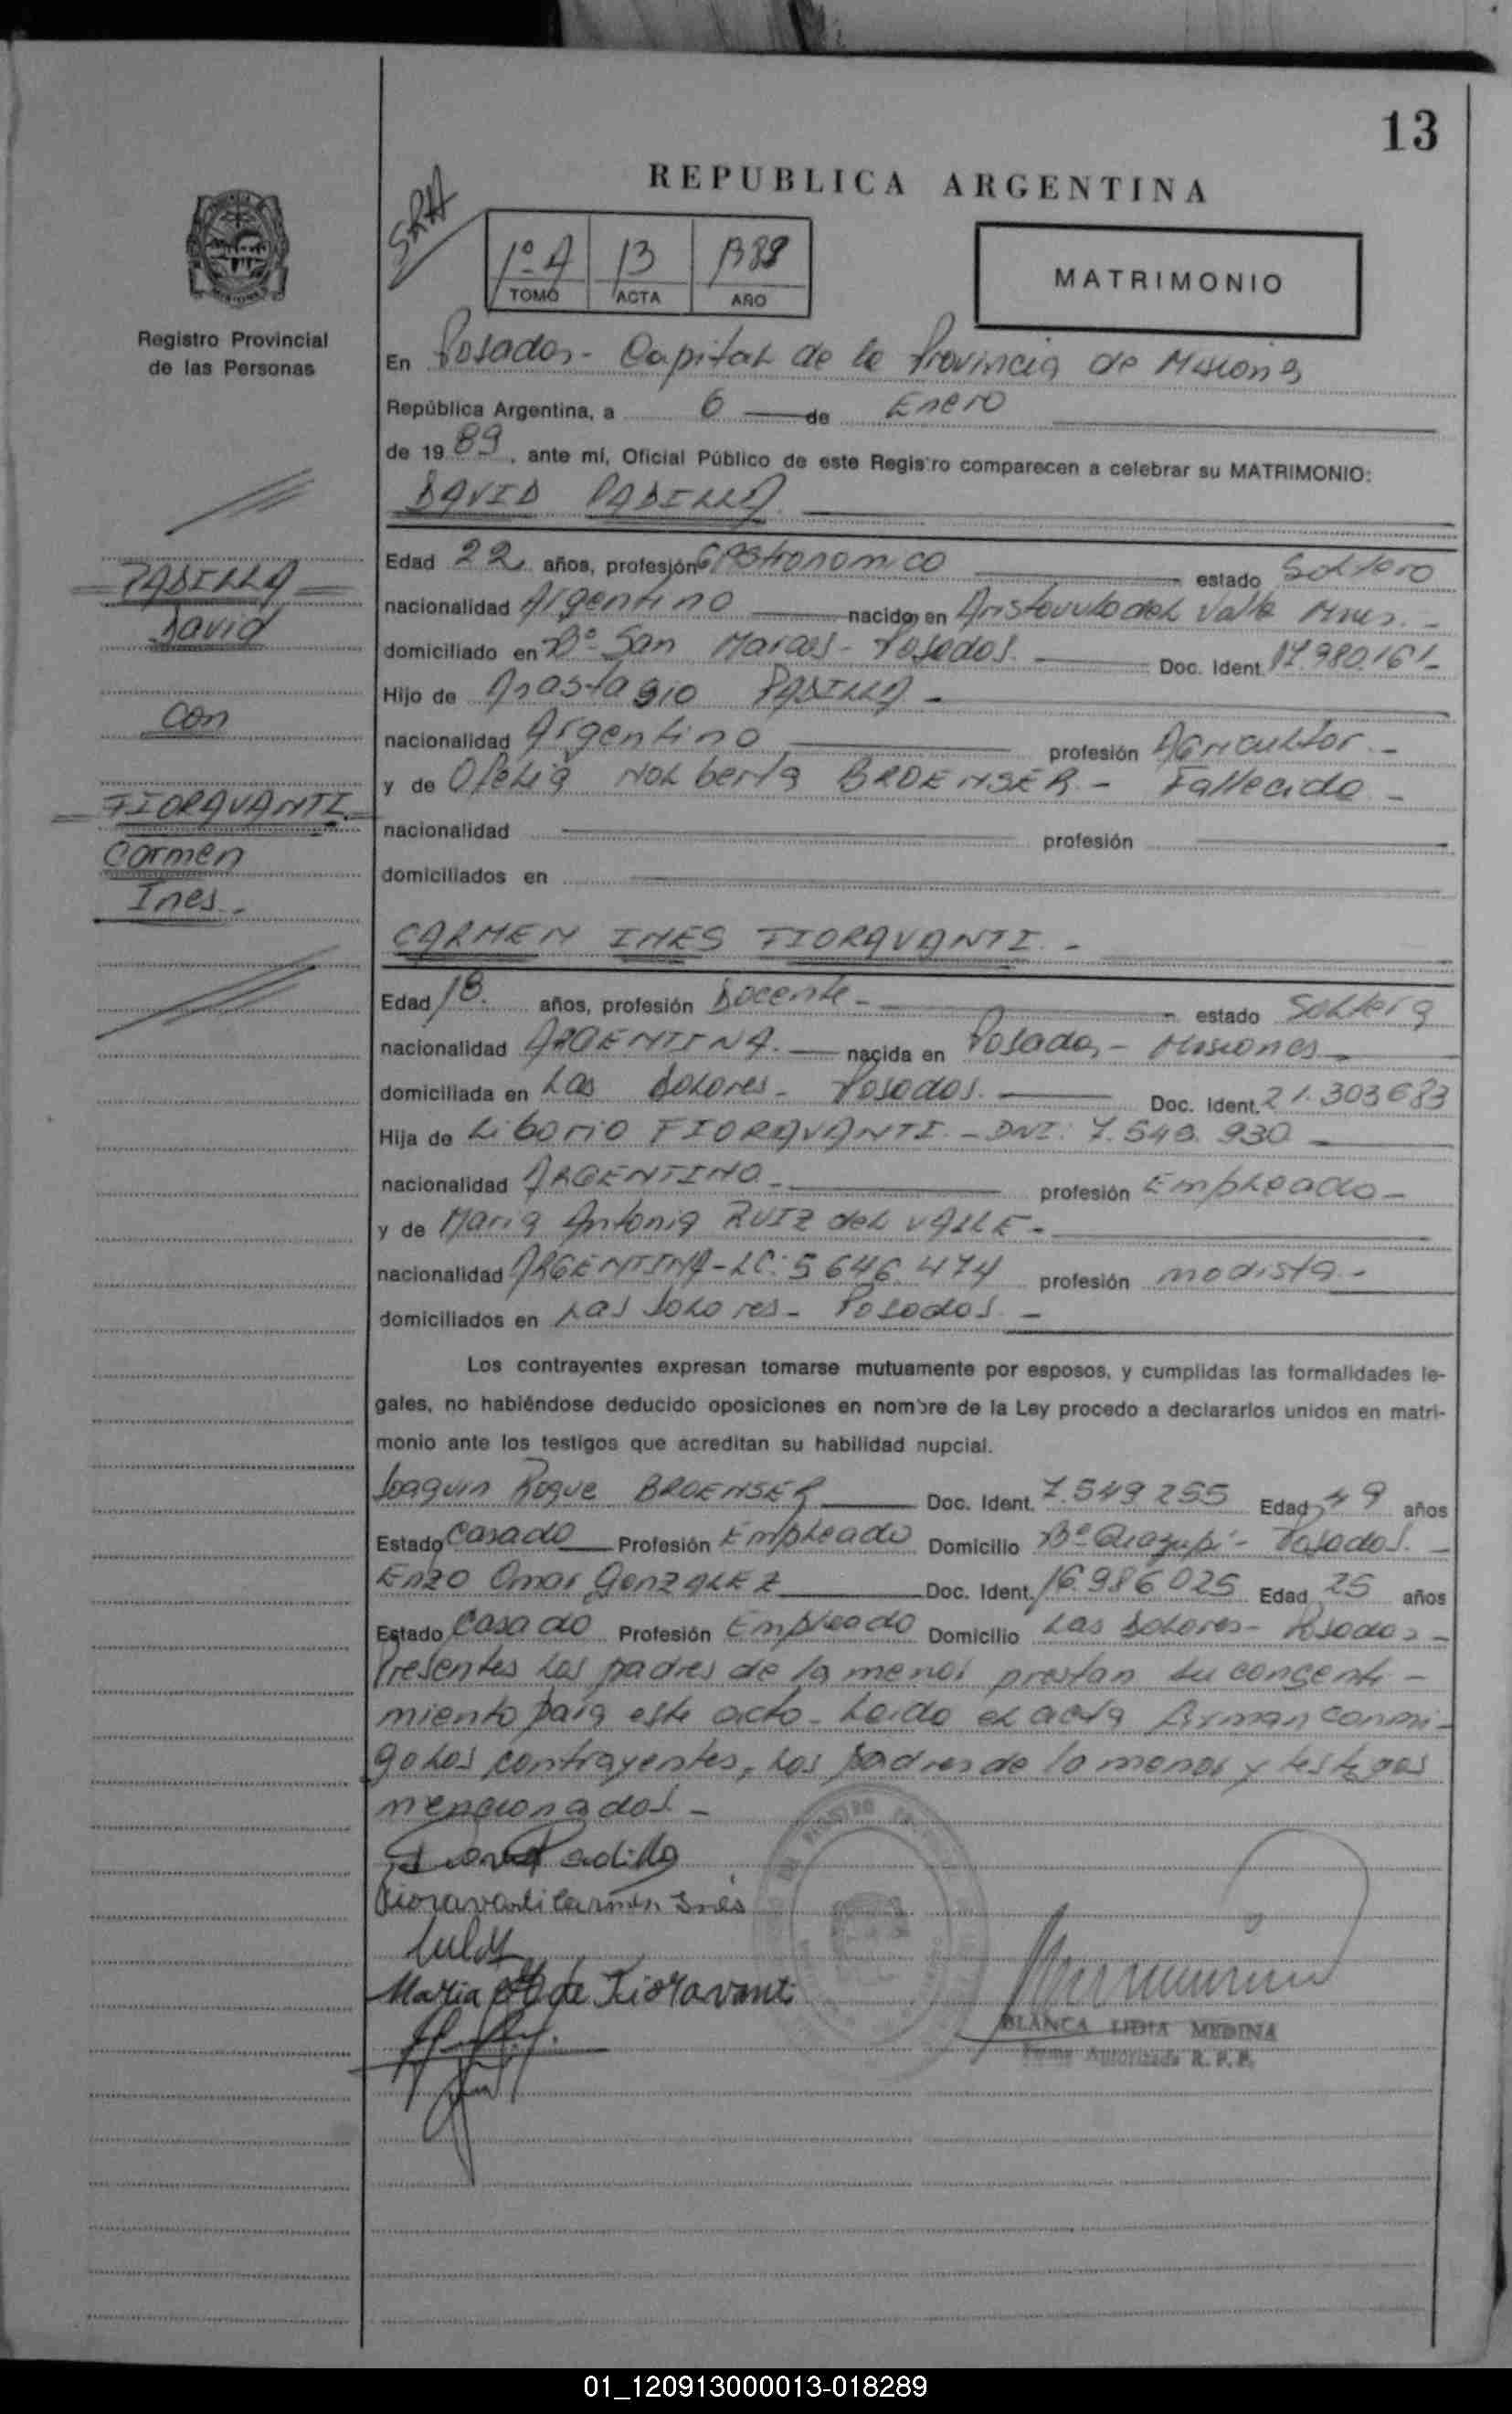 13
REPUBLICA ARGENTINA
1º A 13 1989
TOMO ACTA AÑO
MATRIMONIO
Registro Provincial
de las Personas
En Posadas - Capital de la Provincia de Misiones
República Argentina, a 6 de Enero
de 1989, ante mí, Oficial Público de este Registro comparecen a celebrar su MATRIMONIO:
DAVID PADILLA
PADILLA
David
con
FIORAVANTI
Carmen
Ines -
Edad 22 años, profesión Gastronomico estado Soltero
nacionalidad Argentino nacido en Aristovulo del Valle Mnes. -
domiciliado en Bº San Marcos - Posadas. Doc. Ident. 17.980.161-
Hijo de Anastagio PADILLA -
nacionalidad Argentino profesión Agricultor -
y de Ofelia Nolberta BROENSER - Fallecida -
nacionalidad profesión
domiciliados en
CARMEN INES FIORAVANTI. -
Edad 18. años, profesión Docente - estado Soltera
nacionalidad ARGENTINA. nacida en Posadas - Misiones -
domiciliada en Las Dolores - Posadas. Doc. Ident. 21.303683
Hija de Liborio FIORAVANTI. - DNI: 7.549.930
nacionalidad ARGENTINO - profesión Empleado -
y de Maria Antonia RUIZ del VALLE -
nacionalidad ARGENTINA - LC: 5646.474 profesión modista -
domiciliados en Las Dolores - Posadas -
Los contrayentes expresan tomarse mutuamente por esposos, y cumplidas las formalidades le-
gales, no habiéndose deducido oposiciones en nombre de la Ley procedo a declararlos unidos en matri-
monio ante los testigos que acreditan su habilidad nupcial.
Joaquin Roque BROENSER Doc. Ident. 7.549 255 Edad 49 años
Estado Casado Profesión Empleado Domicilio Bº Guazupi - Posadas. -
Enzo Omar GonzALEZ Doc. Ident. 16.986025 Edad 25 años
Estado Casado Profesión Empleado Domicilio Las Dolores - Posadas -
Presentes los padres de la menor prestan su concenti-
miento para este acto - Leida el acta firman conmi-
go los contrayentes, los padres de la menor y testigos
mencionados -
Padilla
Fioravanti Carmen Inés
Maria de Fioravanti
BLANCA LIDIA MEDINA
Firma Autorizada R. P. P.
01_120913000013-018289